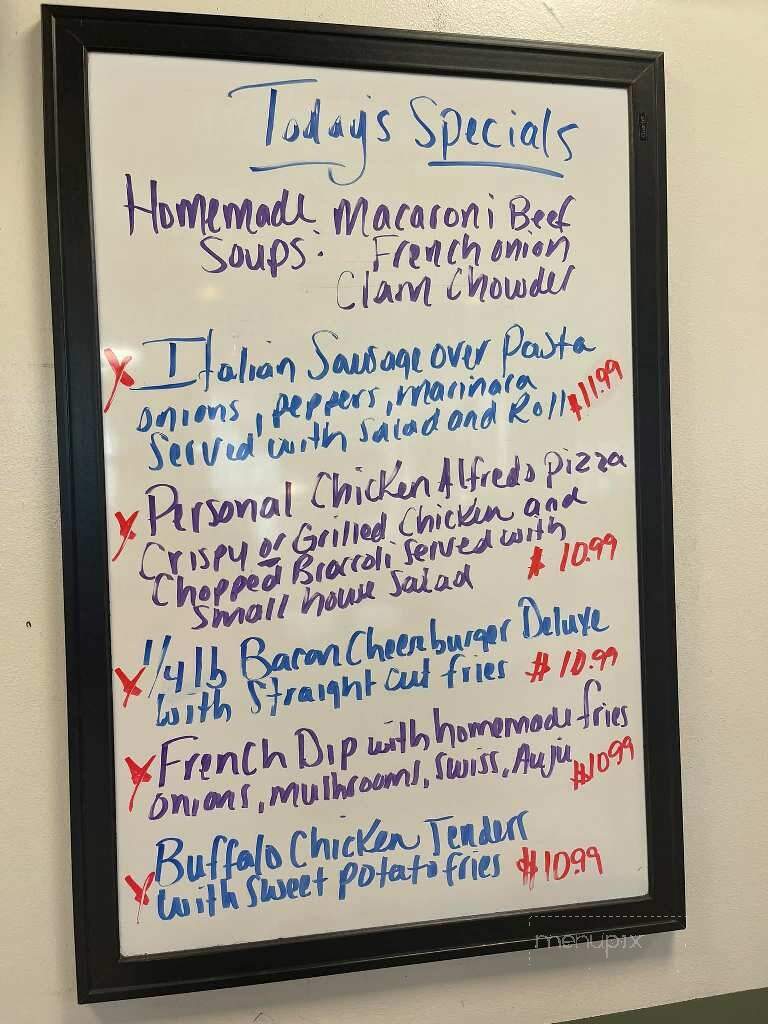 Today's Specials
Homemade Macaroni Beef
Soups: French onion
Clam Chowder
X Italian Sausage over Pasta
onions, peppers, marinara
Served with salad and Roll $11.99
X Personal Chicken Alfredo Pizza
Crispy or Grilled Chicken and
Chopped Broccoli served with
small house salad $10.99
X 1/4 lb Bacon Cheeseburger Deluxe
with Straight cut fries $10.99
X French Dip with homemade fries
onions, mushrooms, swiss, Auju $10.99
X Buffalo Chicken Tenders
with sweet potato fries $10.99
menupix